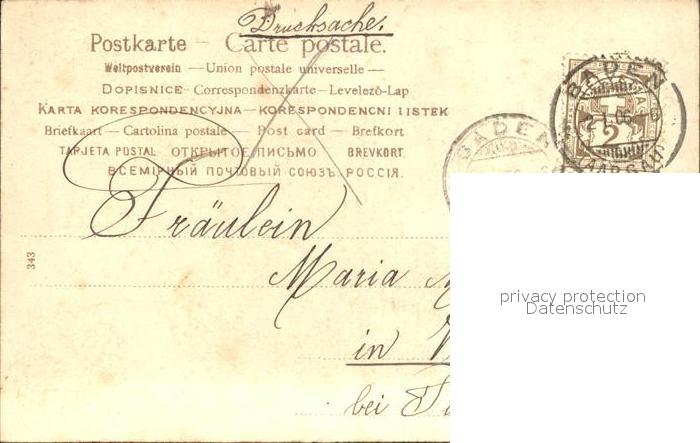 Drucksache.
Postkarte – Carte postale.
Weltpostverein — Union postale universelle —
Dopisnice - Correspondenzkarte - Levelező-Lap
KARTA KORESPONDENCYJNA – KORESPONDENCNI LISTEK
Briefkaart – Cartolina postale – Post card – Brefkort
TARJETA POSTAL ОТКРЫТОЕ ПИСЬМО BREVKORT.
ВСЕМІРНЫЙ ПОЧТОВЫЙ СОЮЗЪ РОССІЯ.
BADEN
2
(AARGAU)
BADEN
Fräulein
Maria
in
bei
343
privacy protection
Datenschutz